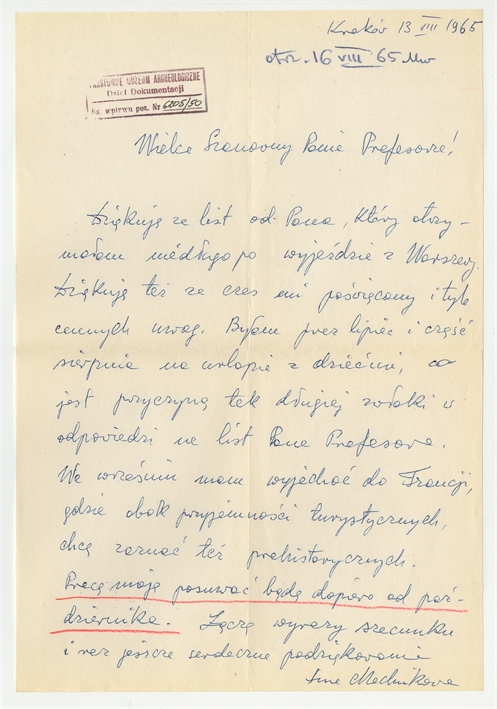 Kraków 13 VIII 1965
otrz. 16 VIII 65
PAŃSTWOWE MUZEUM ARCHEOLOGICZNE
Dział Dokumentacji
Ks. wpływu poz. Nr 6205/50
Wielce Szanowny Panie Profesorze!
Dziękuję za list od Pana, który otrzy-
małam niedługo po wyjeździe z Warszawy.
Dziękuję też za czas mi poświęcony i tyle
cennych uwag. Byłam przez lipiec i część
sierpnia na urlopie z dziećmi, co
jest przyczyną tak długiej zwłoki w
odpowiedzi na list Pana Profesora.
We wrześniu mam wyjechać do Francji,
gdzie obok przyjemności turystycznych,
chcę zaznać też prehistorycznych.
Pracę moją posuwać będę dopiero od paź-
dziernika. Łączę wyrazy szacunku
i raz jeszcze serdeczne podziękowanie